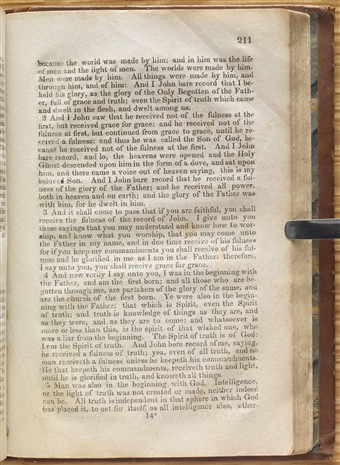 211
because the world was made by him; and in him was the life
of men and the light of men. The worlds were made by him.
Men were made by him. All things were made by him, and
through him, and of him: And I John bare record that I be-
held his glory, as the glory of the Only Begotten of the Fath-
er, full of grace and truth; even the Spirit of truth which came
and dwelt in the flesh, and dwelt among us.
2 And I John saw that he received not of the fulness at the
first, but received grace for grace: and he received not of the
fulness at first, but continued from grace to grace, until he re-
ceived a fulness: and thus he was called the Son of God, be-
cause he received not of the fulness at the first. And I John
bare record, and lo, the heavens were opened and the Holy
Ghost descended upon him in the form of a dove, and sat upon
him, and there came a voice out of heaven saying, this is my
beloved Son. And I John bare record that he received a ful-
ness of the glory of the Father; and he received all power,
both in heaven and on earth; and the glory of the Father was
with him, for he dwelt in him.
3 And it shall come to pass that if you are faithful, you shall
receive the fulness of the record of John. I give unto you
these sayings that you may understand and know how to wor-
ship, and know what you worship, that you may come unto
the Father in my name, and in due time receive of his fulness
for if you keep my commandments you shall receive of his ful-
ness and be glorified in me as I am in the Father: therefore,
I say unto you, you shall receive grace for grace.
4 And now verily I say unto you, I was in the beginning with
the Father, and am the first born; and all those who are be-
gotten through me, are partakers of the glory of the same, and
are the church of the first born. Ye were also in the begin-
ning with the Father; that which is Spirit, even the Spirit
of truth; and truth is knowledge of things as they are, and
as they were, and as they are to come: and whatsoever is
more or less than this, is the spirit of that wicked one, who
was a liar from the beginning. The Spirit of truth is of God:
I am the Spirit of truth. And John bore record of me, saying,
he received a fulness of truth; yea, even of all truth, and no
man receiveth a fulness unless he keepeth his commandments.
He that keepeth his commandments, receiveth truth and light,
until he is glorified in truth, and knoweth all things.
5 Man was also in the beginning with God. Intelligence,
or the light of truth was not created or made, neither indeed
can be. All truth is independent in that sphere in which God
has placed it, to act for itself, as all intelligence also, other-
14*